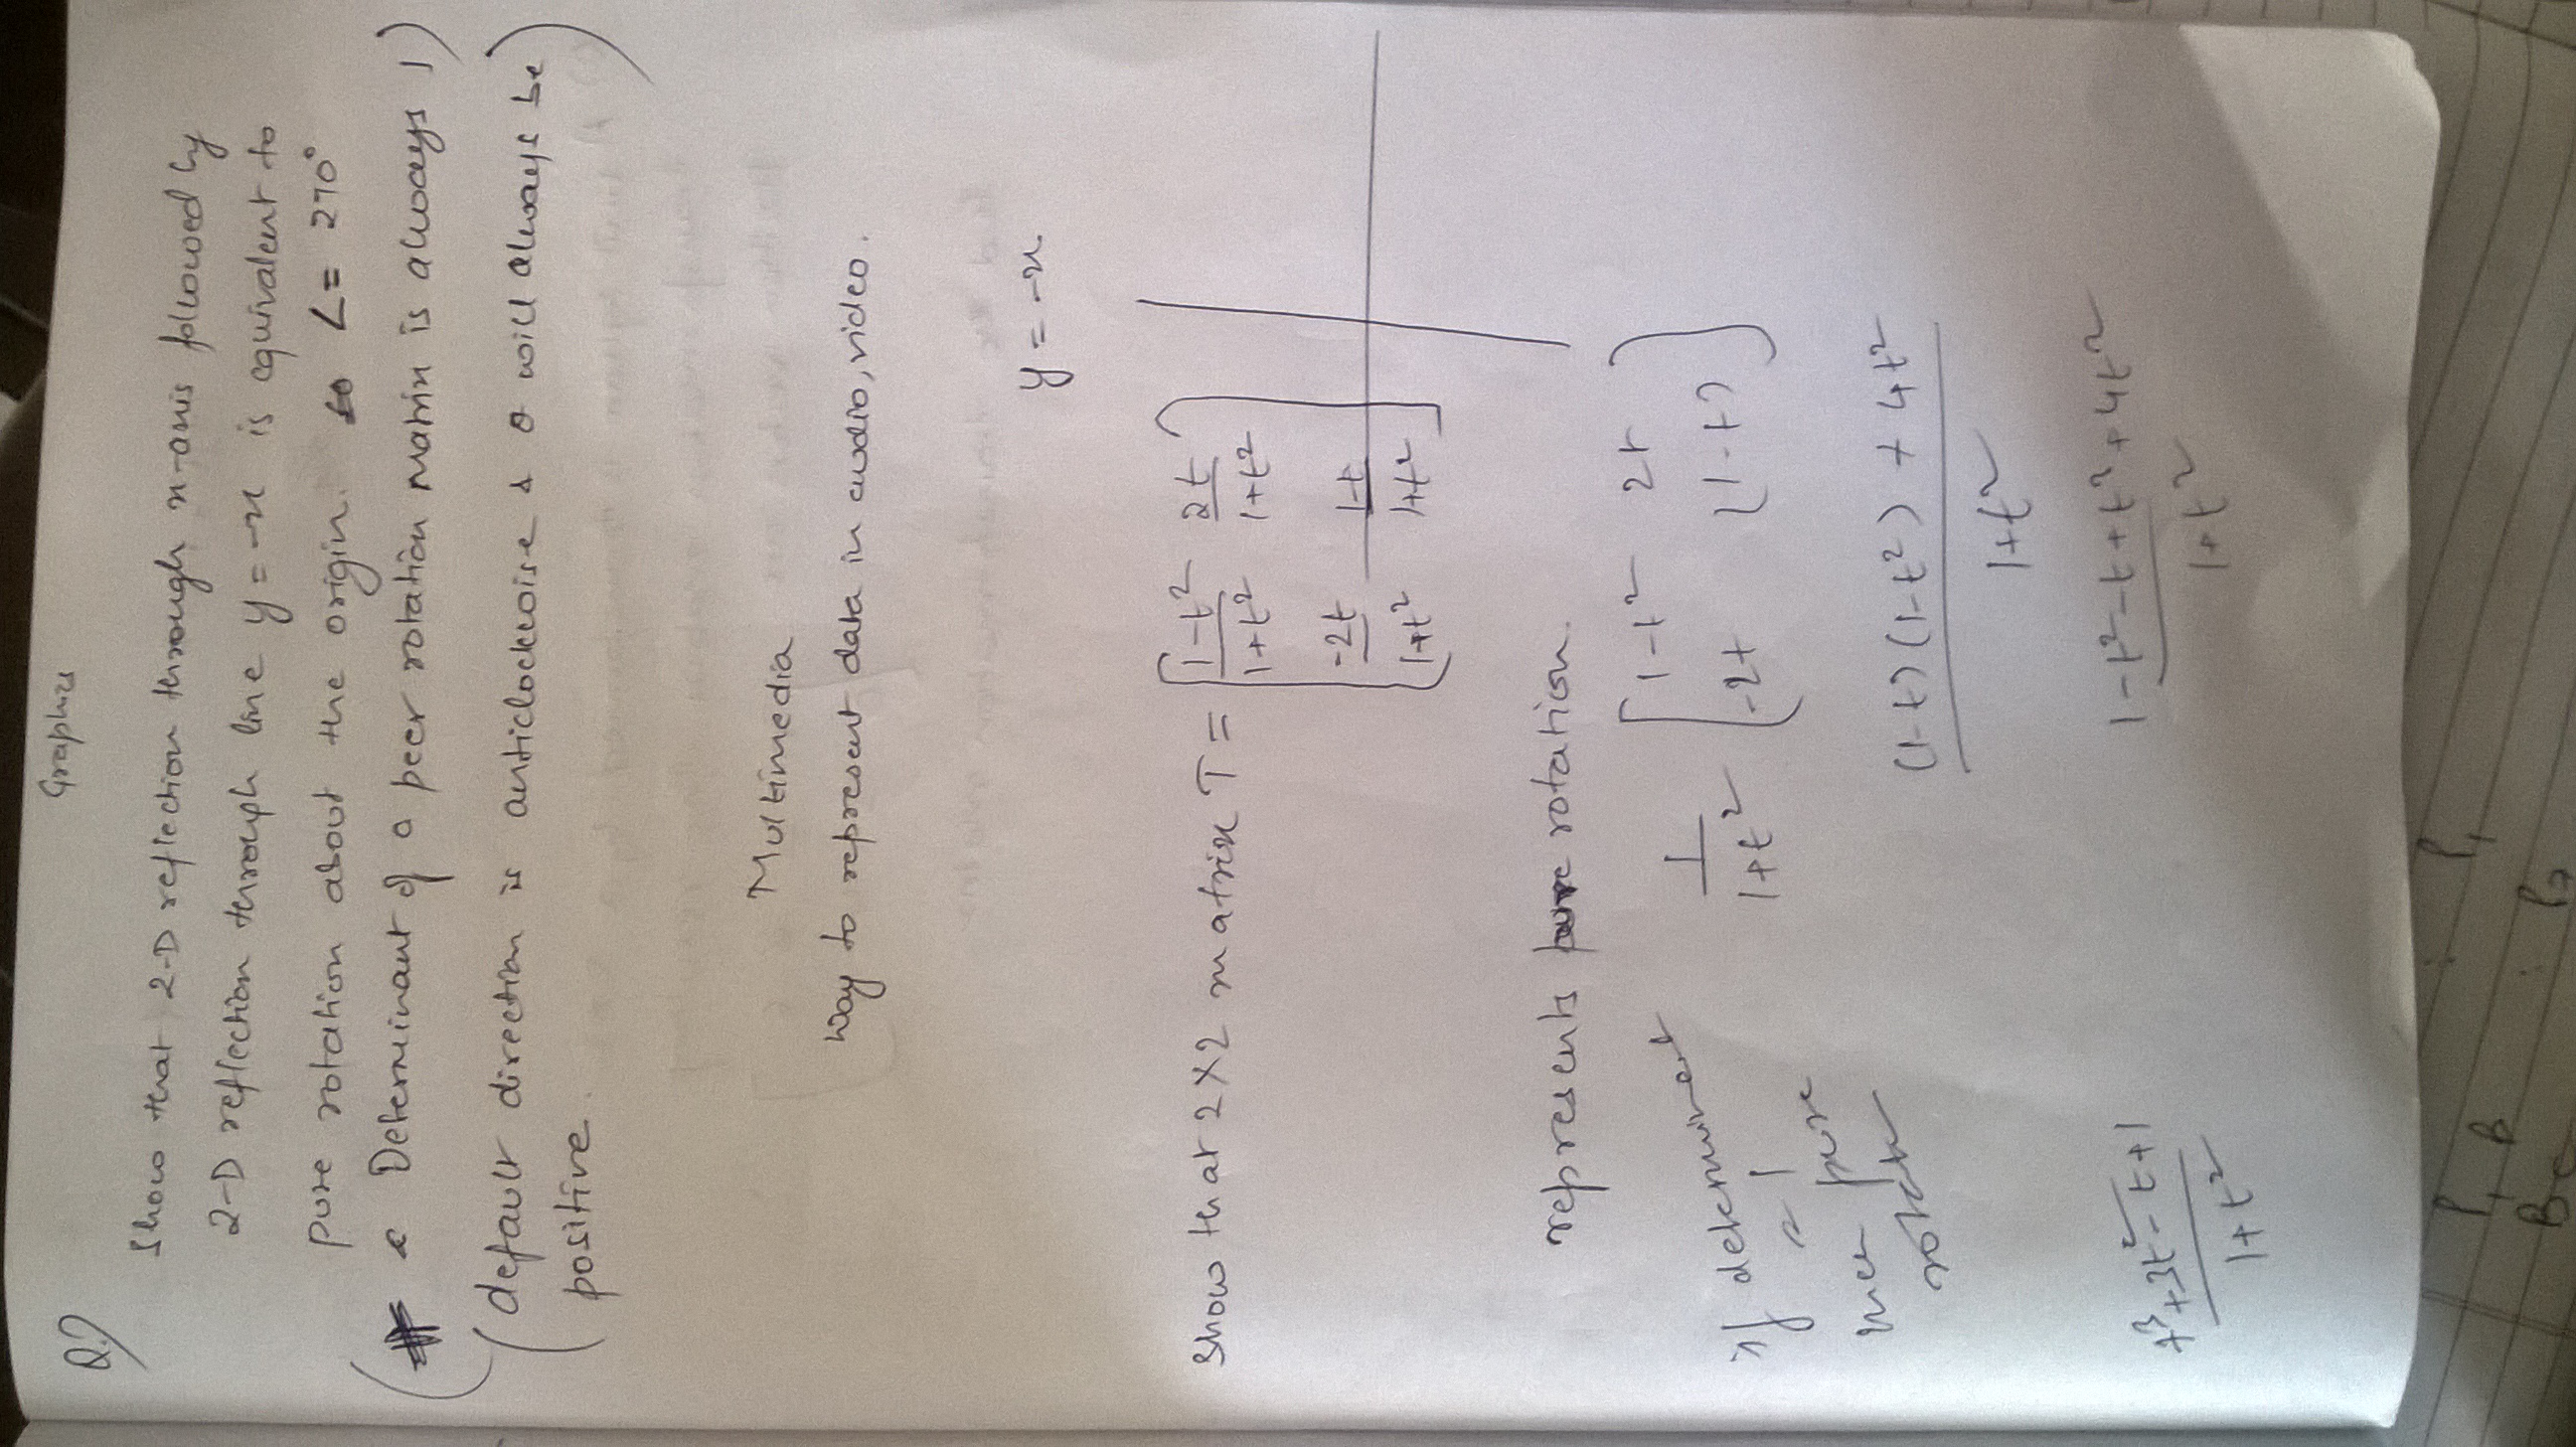 Graphics
Q7
Show that 2-D reflection through x-axis followed by
2-D reflection through line y = -x is equivalent to
pure rotation about the origin. to ∠ = 270°
(Determinant of a peer rotation matrix is always 1)
(default direction is anticlockwise & θ will always be
positive.)
Multimedia
Way to represent data in audio, video.
y = -x.
Show that 2×2 matrix T = [ (1-t²)/(1+t²)  2t/(1+t²) ; -2t/(1+t²)  (1-t)/(1+t²) ]
represents pure rotation.
if determinant
= 1
pure
1/(1+t²) [ 1-t²  2t ; -2t  (1-t) ]
((1-t)(1-t²) + 4t²)/(1+t²)
(1-t²-t+t³+4t²)/(1+t²)
(t³+3t²-t+1)/(1+t²)
P₁ P₁
B